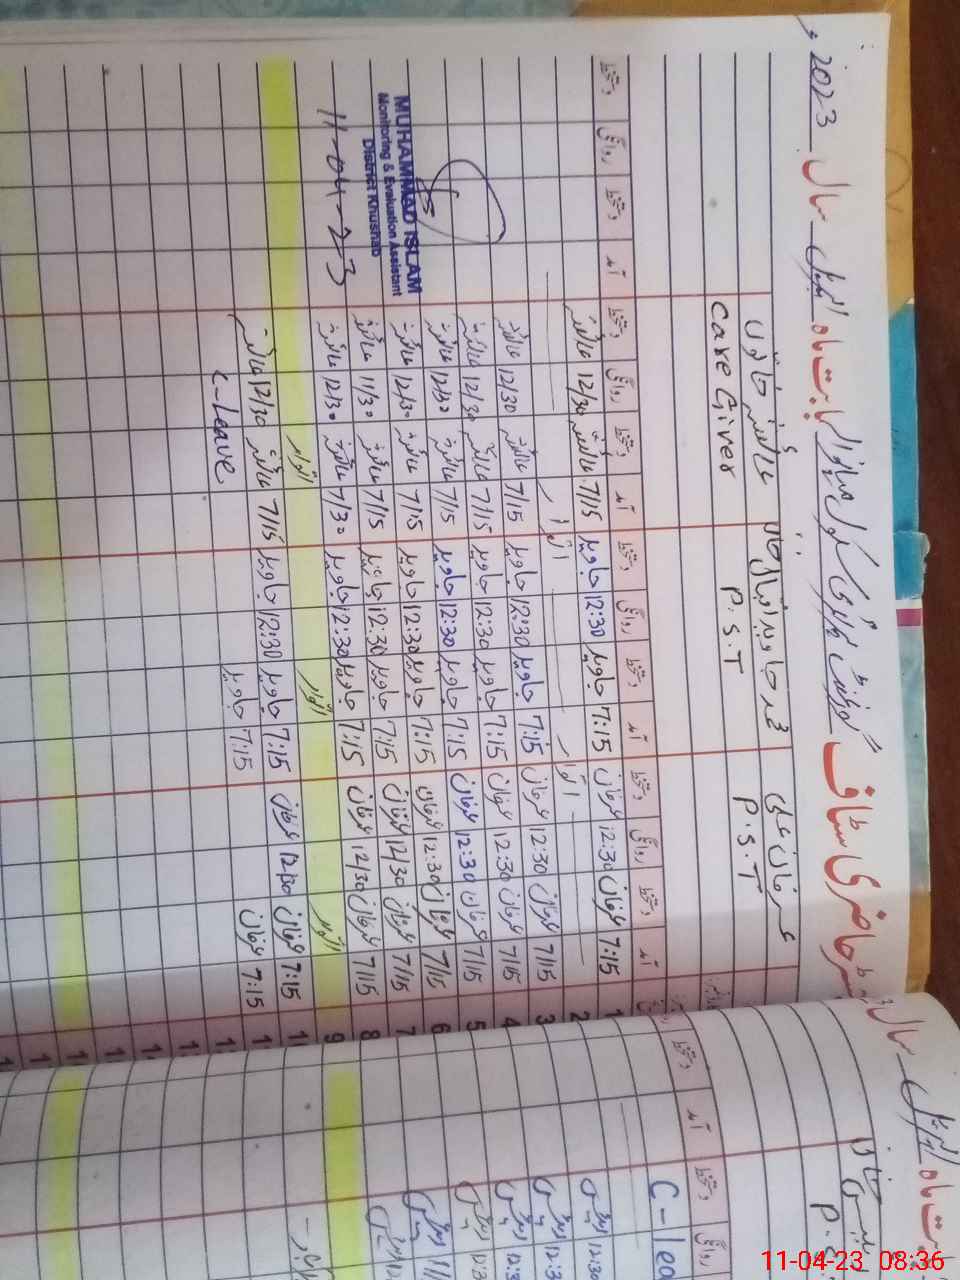 رجسٹر حاضری سٹاف گورنمنٹ پرائمری سکول بابت ماہ اپریل سال 2023ء
عرفان علی
P.S.T
محمد جاوید اقبال خان
P.S.T
عائشہ خاتون
Care Giver
آمد دستخط روانگی دستخط آمد دستخط روانگی دستخط آمد دستخط روانگی دستخط آمد دستخط روانگی دستخط
1 7:15 عرفان 12:30 عرفان 7:15 جاوید 12:30 جاوید 7/15 عائشہ 12/30 عائشہ
2 اتوار اتوار
3 7/15 عرفان 12:30 عرفان 7:15 جاوید 12:30 جاوید 7/15 عائشہ 12/30 عائشہ
4 7/15 عرفان 12:30 عرفان 7:15 جاوید 12:30 جاوید 7/15 عائشہ 12/30 عائشہ
5 7/15 عرفان 12:30 عرفان 7:15 جاوید 12:30 جاوید 7/15 عائشہ 12/30 عائشہ
6 7/15 عرفان 12:30 عرفان 7:15 جاوید 12:30 جاوید 7/15 عائشہ 12/30 عائشہ
7 7/15 عرفان 12/30 عرفان 7:15 جاوید 12:30 جاوید 7/15 عائشہ 11/30 عائشہ
8 7/15 عرفان 12/30 عرفان 7:15 جاوید 12:30 جاوید 7/30 عائشہ 12/30 عائشہ
9 اتوار اتوار اتوار
7:15 عرفان 12/30 عرفان 7:15 جاوید 12:30 جاوید 7/15 عائشہ 12/30 عائشہ
7:15 عرفان 7:15 جاوید C-leave
MUHAMMAD ISLAM
Monitoring & Evaluation Assistant
District Khushab
11-04-23
اپریل سال
بابت ماہ
P.S
دستخط آمد دستخط روانگی
C-lea
12:30
12:3
11-04-23 08:36